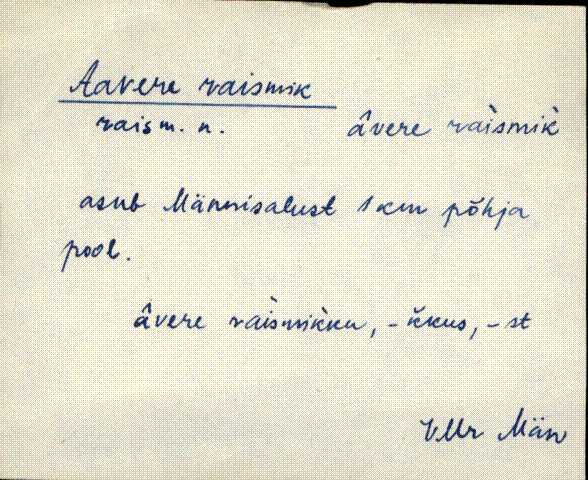 Aavere raismik
raism. n. âvere ràismik̀
asub Männisalust 1 km põhja
pool.
âvere ràismik̀ku, -ĭkkus, -st
VMr Män